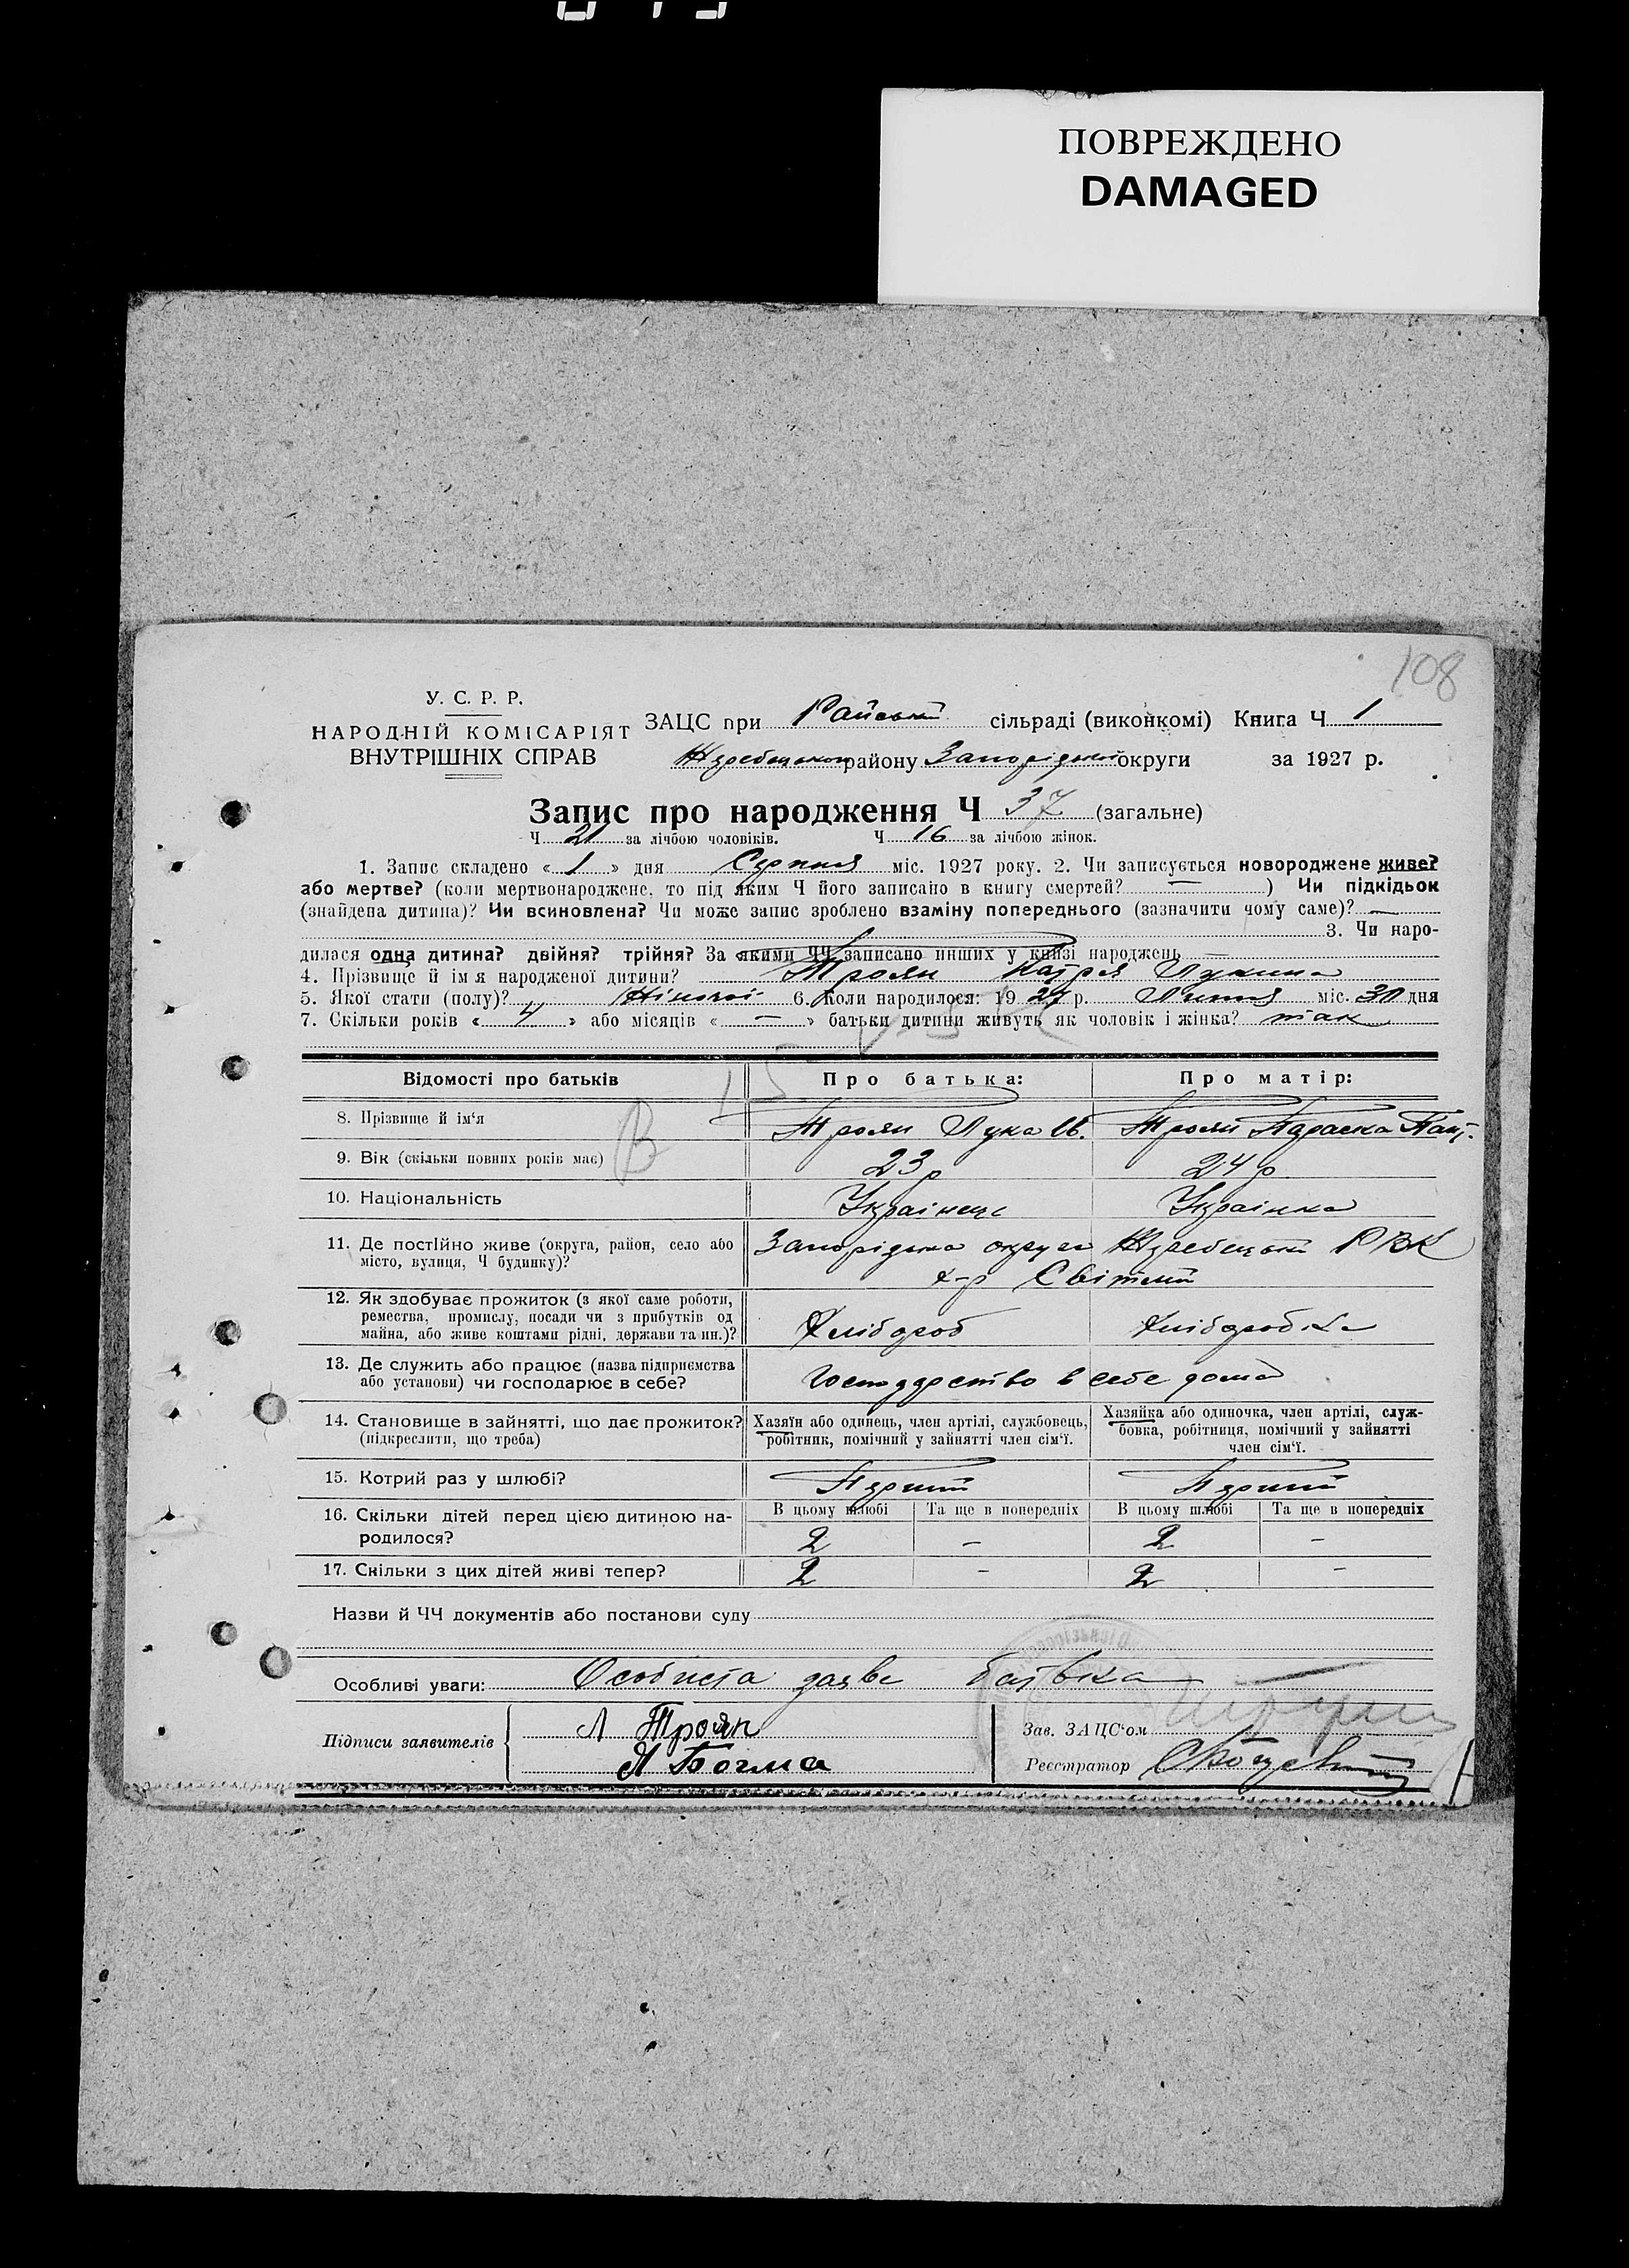 ПОВРЕЖДЕНО
DAMAGED
108
У. С. Р. Р.
НАРОДНІЙ КОМІСАРІЯТ
ВНУТРІШНІХ СПРАВ
ЗАЦС при Райській сільраді (виконкомі) Книга Ч 1
району Запорізької округи за 1927 р.
Запис про народження Ч 37 (загальне)
Ч 21 за лічбою чоловіків. Ч 16 за лічбою жінок.
1. Запис складено « 1 » дня Серпня міс. 1927 року. 2. Чи записується новороджене живе?
або мертве? (коли мертвонароджене, то під яким Ч його записано в книгу смертей? — ) Чи підкідьок
(знайдена дитина)? Чи всиновлена? Чи може запис зроблено взаміну попереднього (зазначити чому саме)? —
3. Чи наро-
дилася одна дитина? двійня? трійня? За якими ЧЧ записано инших у книзі народжень —
4. Прізвище й імя народженої дитини? Троян Катря Лукина
5. Якої стати (полу)? Жіночої 6. Коли народилося: 19 27 р. Липня міс. 30 дня
7. Скільки років « 4 » або місяців « — » батьки дитини живуть як чоловік і жінка? так
Відомості про батьків
Про батька:
Про матір:
8. Прізвище й ім'я
Троян Лука Ів.
Троян Параска
9. Вік (скільки повних років має)
23 р
24 р.
10. Національність
Українець
Українка
11. Де постійно живе (округа, район, село або
місто, вулиця, Ч будинку)?
Запорізька округа Жеребецький РВК
х-р Світлий
12. Як здобуває прожиток (з якої саме роботи,
ремества, промислу, посади чи з прибутків од
майна, або живе коштами рідні, держави та ин.)?
Хлібороб
Хліборобка
13. Де служить або працює (назва підприємства
або установи) чи господарює в себе?
Господарство в себе дома
14. Становище в зайнятті, що дає прожиток?
(підкреслити, що треба)
Хазяїн або одинець, член артілі, службовець,
робітник, помічний у зайнятті член сім'ї.
Хазяйка або одиночка, член артілі, служ-
бовка, робітниця, помічний у зайнятті
член сім'ї.
15. Котрий раз у шлюбі?
Перший
Перший
16. Скільки дітей перед цією дитиною на-
родилося?
В цьому шлюбі
Та ще в попередніх
В цьому шлюбі
Та ще в попередніх
2 – 2 –
17. Скільки з цих дітей живі тепер?
2 – 2 –
Назви й ЧЧ документів або постанови суду
Особливі уваги: Особиста заява батька
Підписи заявителів
Л Троян
Я Богма
Зав. ЗАЦС'ом
Реєстратор